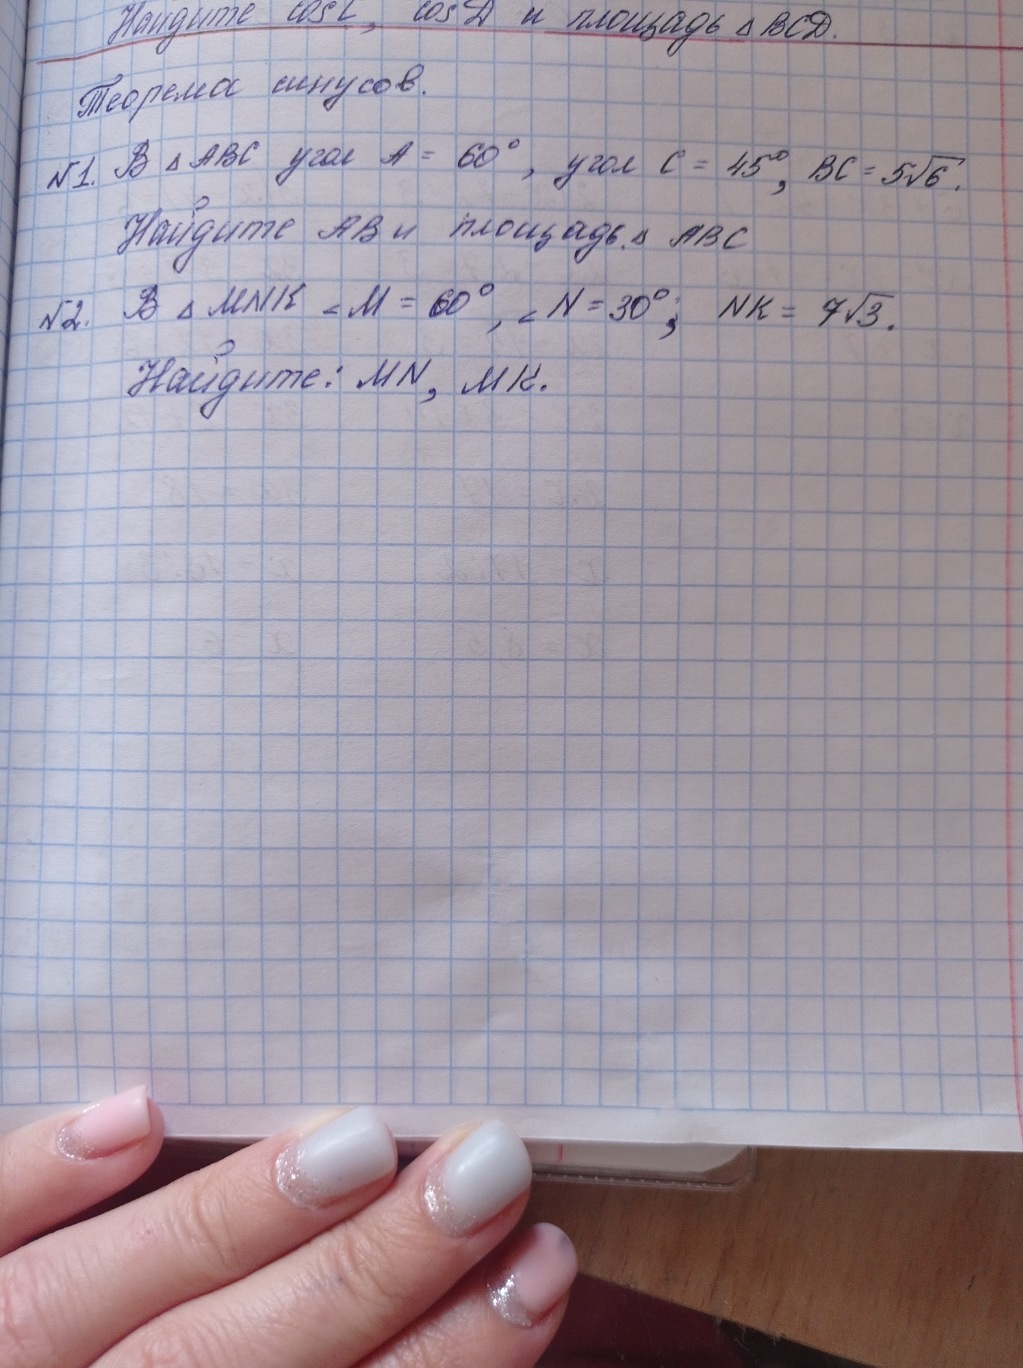 Найдите cos C, cos D и площадь △ BCD.
Теорема синусов.
№1. В △ ABC угол A = 60°, угол C = 45°, BC = 5√6.
Найдите AB и площадь △ ABC
№2. В △ MNK ∠M = 60°, ∠N = 30°; NK = 7√3.
Найдите: MN, MK.